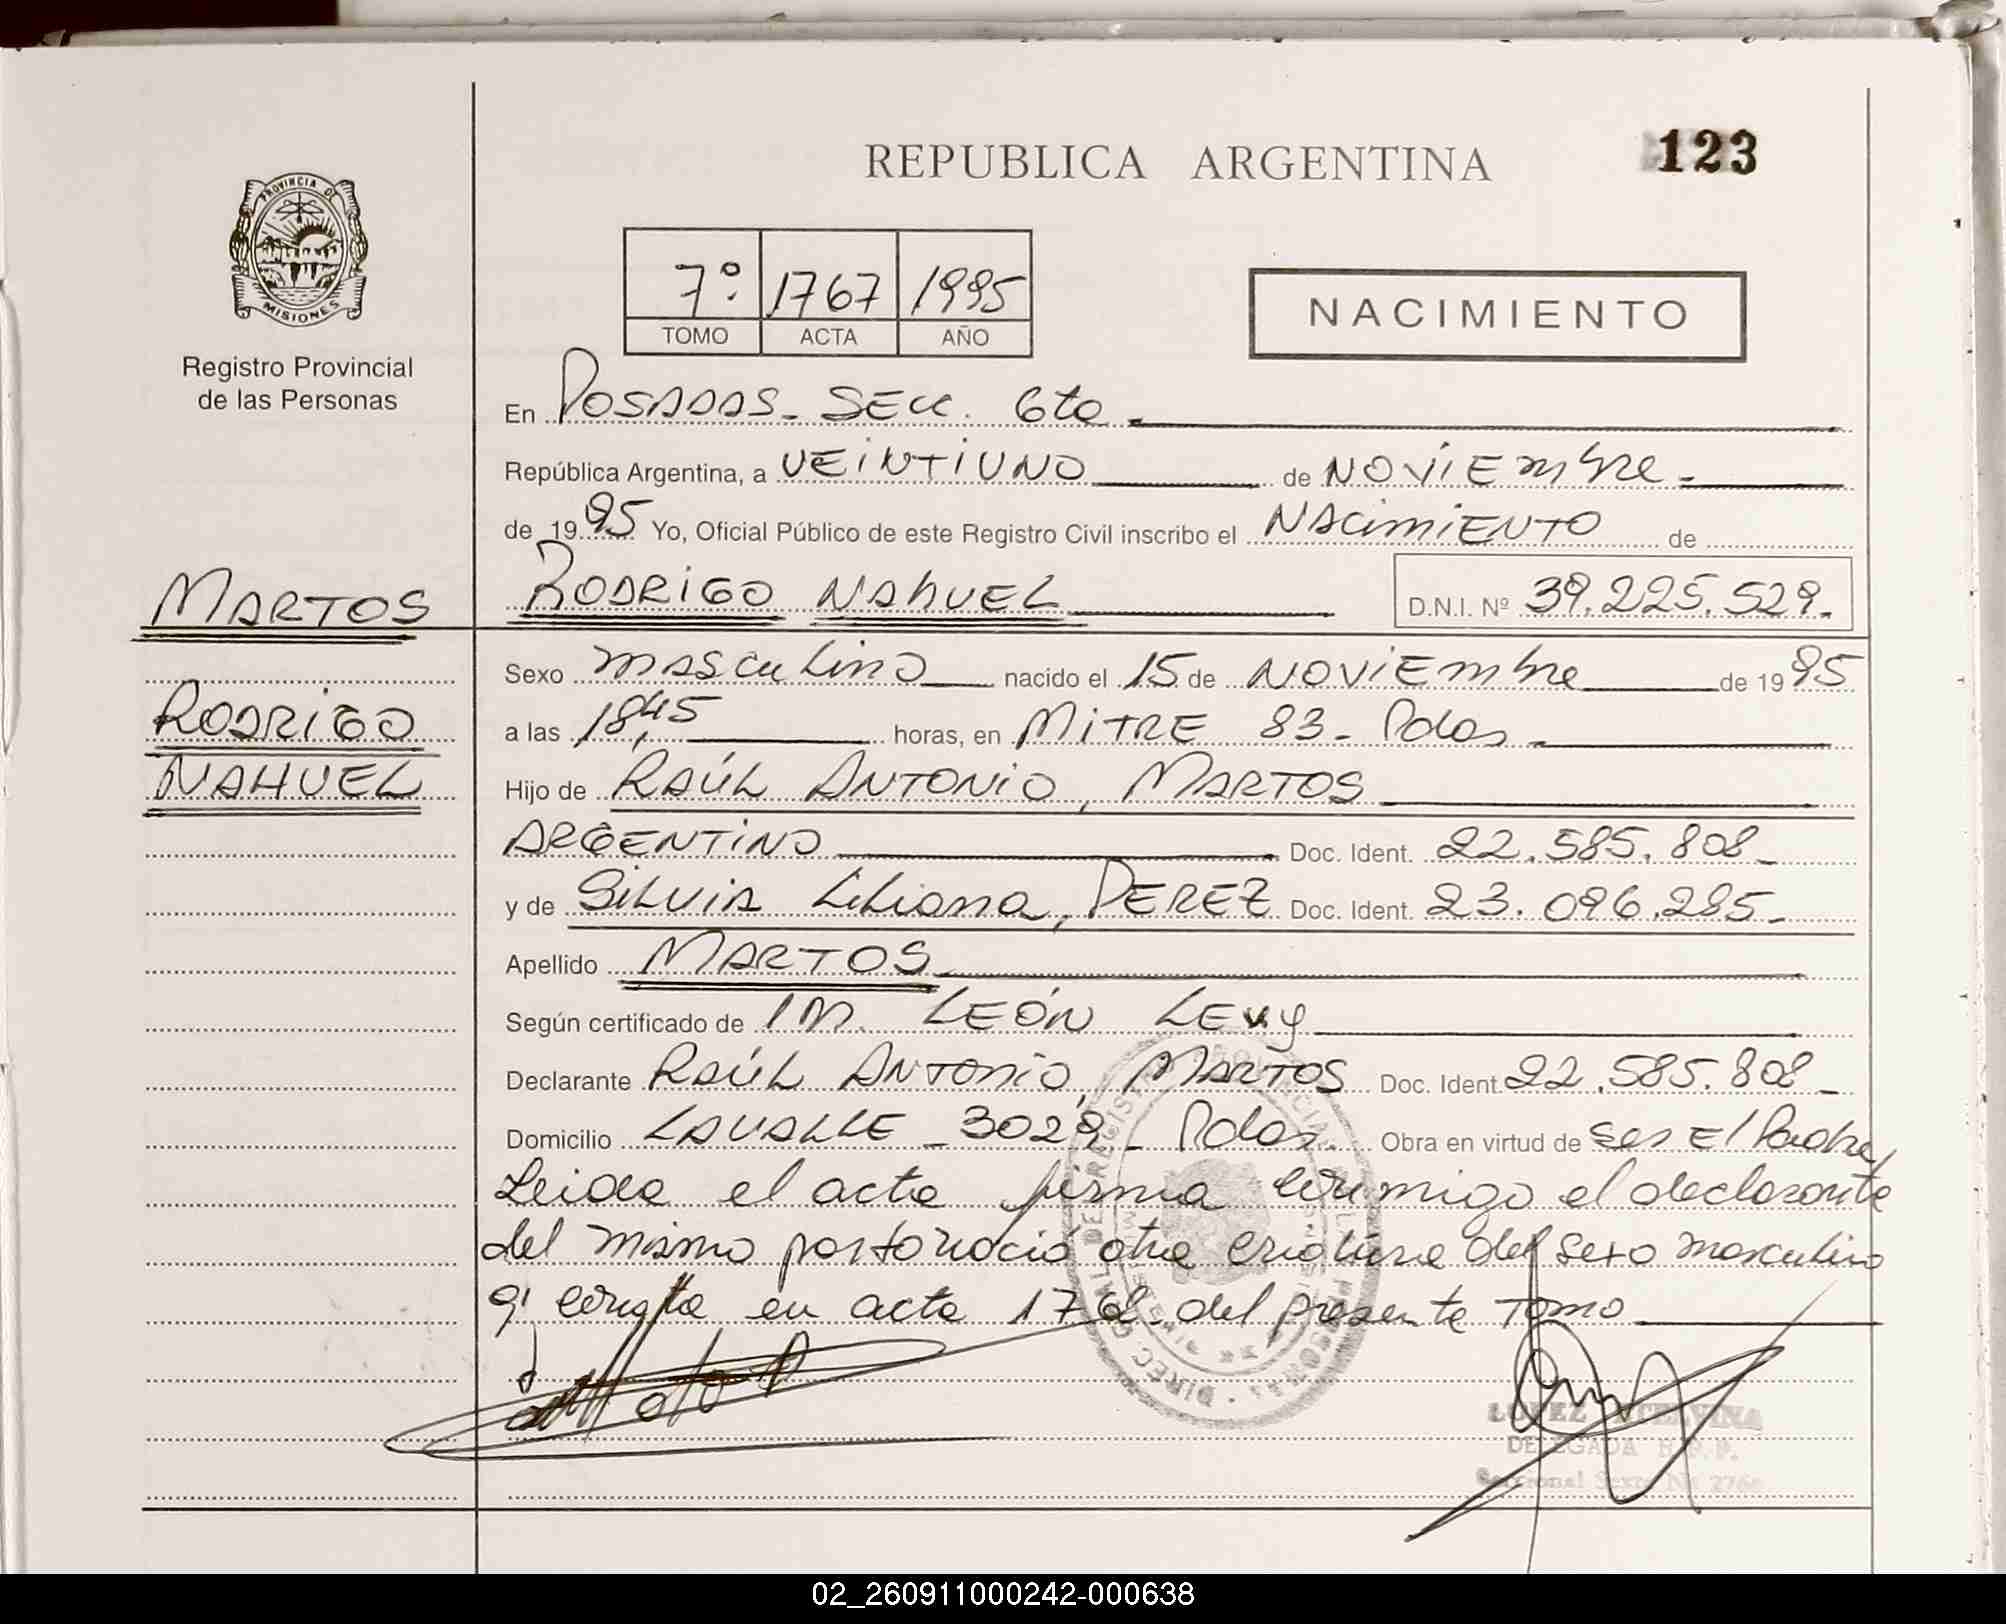 REPUBLICA ARGENTINA
123
PROVINCIA DE
MISIONES
Registro Provincial
de las Personas
7º 1767 1995
TOMO ACTA AÑO
NACIMIENTO
En POSADAS - SECC. 6ta
República Argentina, a VEINTIUNO de NOVIEmbre
de 1995 Yo, Oficial Público de este Registro Civil inscribo el NACimiENTO de
MARTOS
RODRIGO NAhUEL D.N.I. Nº 39.225.529.
RODRIGO
NAHUEL
Sexo masculino nacido el 15 de NOVIEmbre de 1995
a las 18,45 horas, en MITRE 83 - Pdas
Hijo de RAÚL ANTONIO, MARTOS
ARGENTINO Doc. Ident. 22.585.808
y de SILVIA Liliana, PEREZ Doc. Ident. 23.096.285
Apellido MARTOS
Según certificado de IM. LEÓN LEVY
Declarante RAÚL ANTONIO, MARTOS Doc. Ident. 22.585.808
Domicilio LAVALLE - 3029 - Pdas. Obra en virtud de ser El Padre
Leida el acta firma conmigo el declarante
del mismo parto nació otra criatura del sexo masculino
q' consta en acta 1768 del presente Tomo
LOPEZ
DELEGADA R.P.P.
Seccional Sexta
02_260911000242-000638